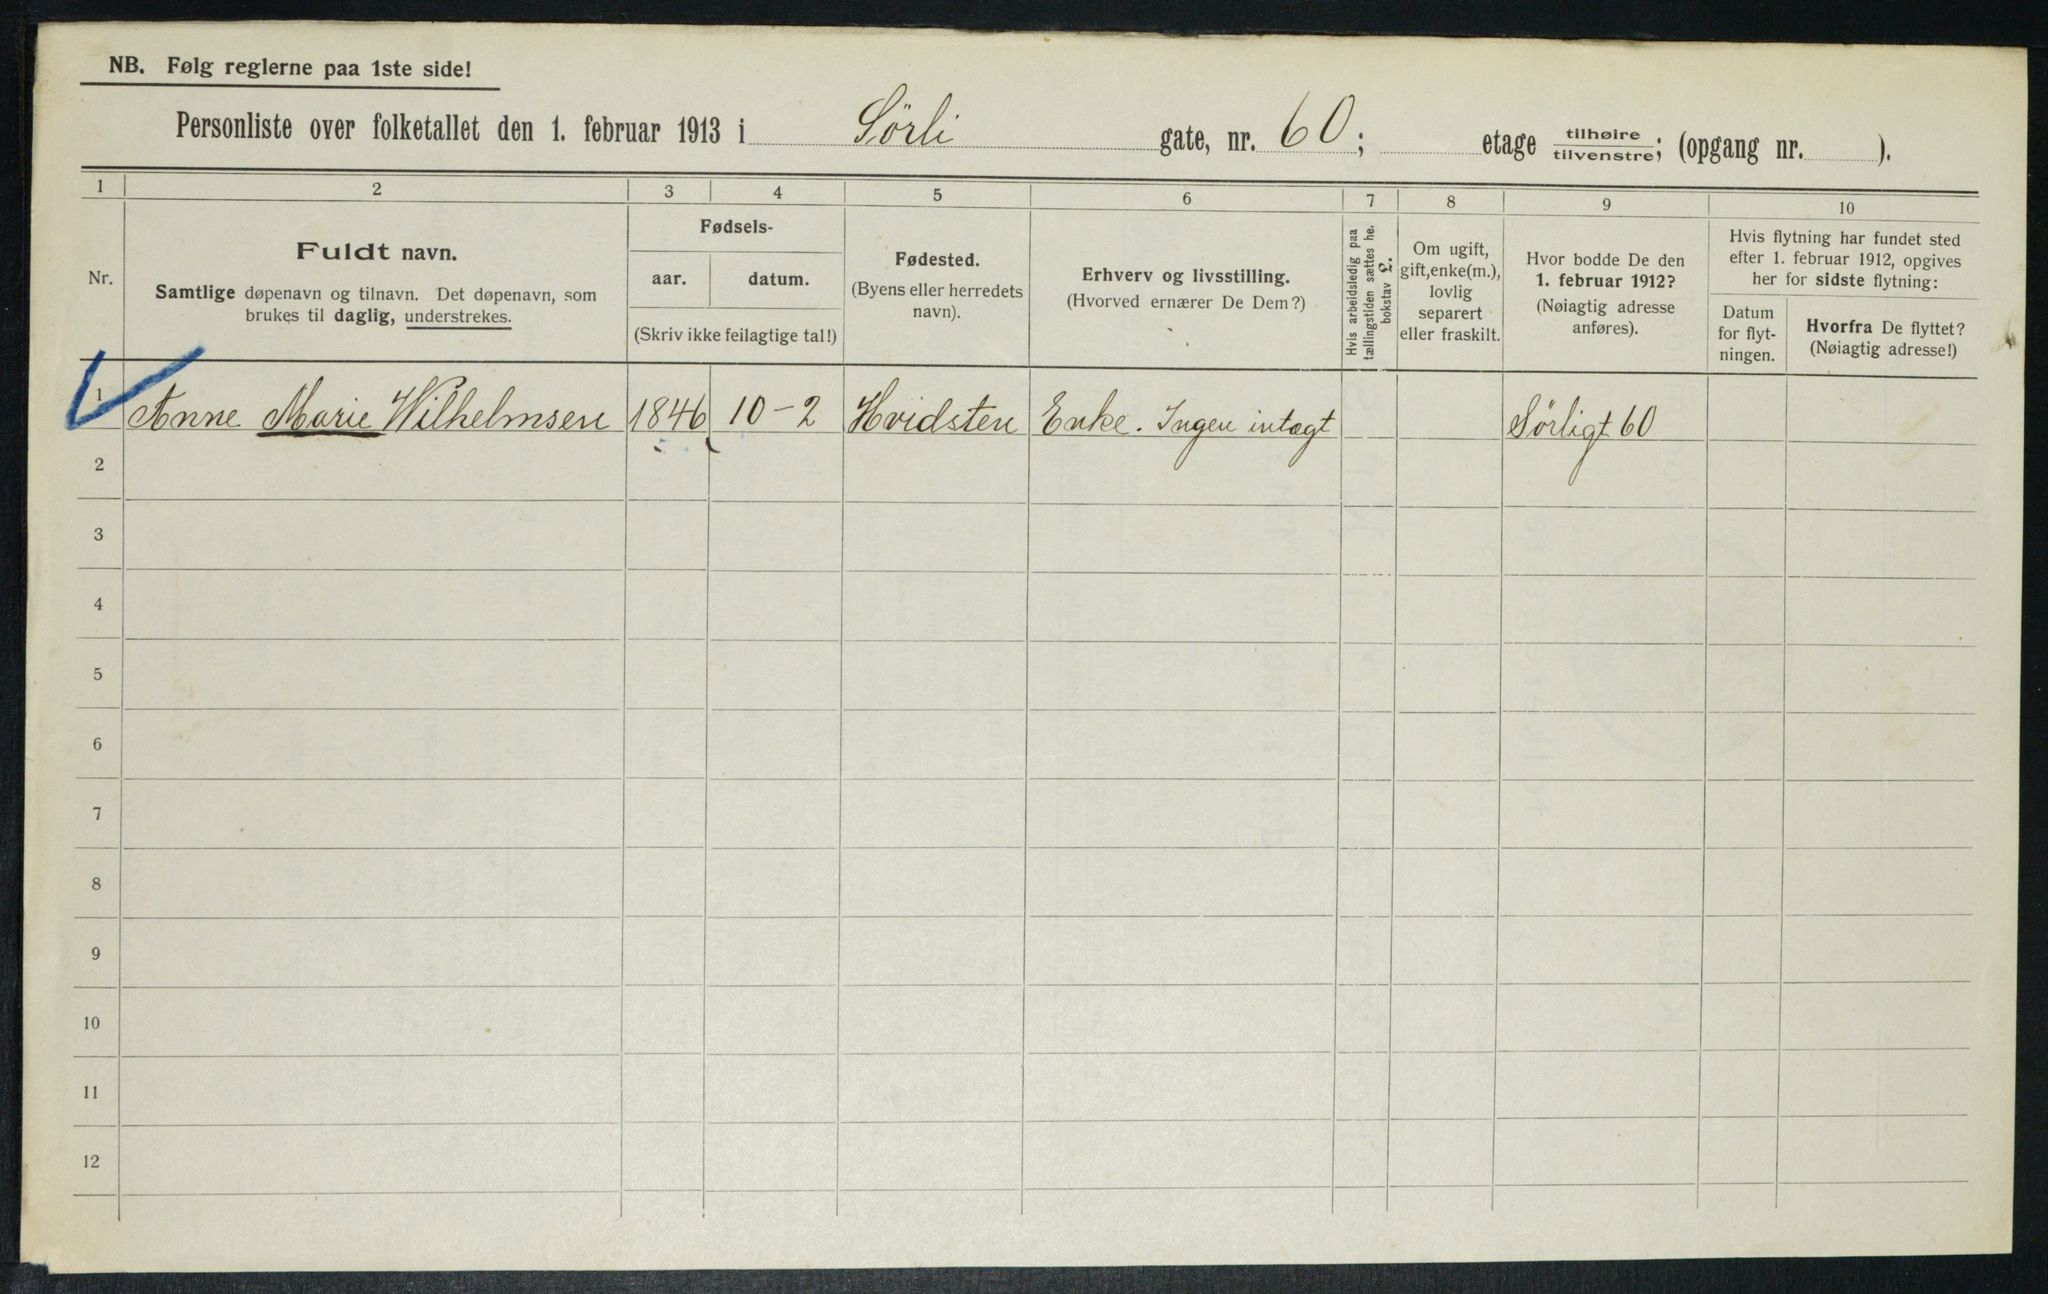 NB. Følg reglerne paa 1ste side!
Personliste over folketallet den 1. februar 1913 i Sörli gate, nr. 60; etage tilhøire/tilvenstre; (opgang nr. ).
1 2 3 4 5 6 7 8 9 10
Nr.
Fuldt navn.
Samtlige døpenavn og tilnavn. Det døpenavn, som
brukes til daglig, understrekes.
Fødsels-
aar. datum.
(Skriv ikke feilagtige tal!)
Fødested.
(Byens eller herredets
navn).
Erhverv og livsstilling.
(Hvorved ernærer De Dem?)
Hvis arbeidsledig paa
tællingstiden sættes he.
bokstav £.
Om ugift,
gift, enke(m.),
lovlig
separert
eller fraskilt.
Hvor bodde De den
1. februar 1912?
(Nøiagtig adresse
anføres).
Hvis flytning har fundet sted
efter 1. februar 1912, opgives
her for sidste flytning:
Datum
for flyt-
ningen.
Hvorfra De flyttet?
(Nøiagtig adresse!)
1 Anne Marie Wilhelmsen 1846 10-2 Hvidsten Enke. Ingen intægt Sörligt 60
2
3
4
5
6
7
8
9
10
11
12